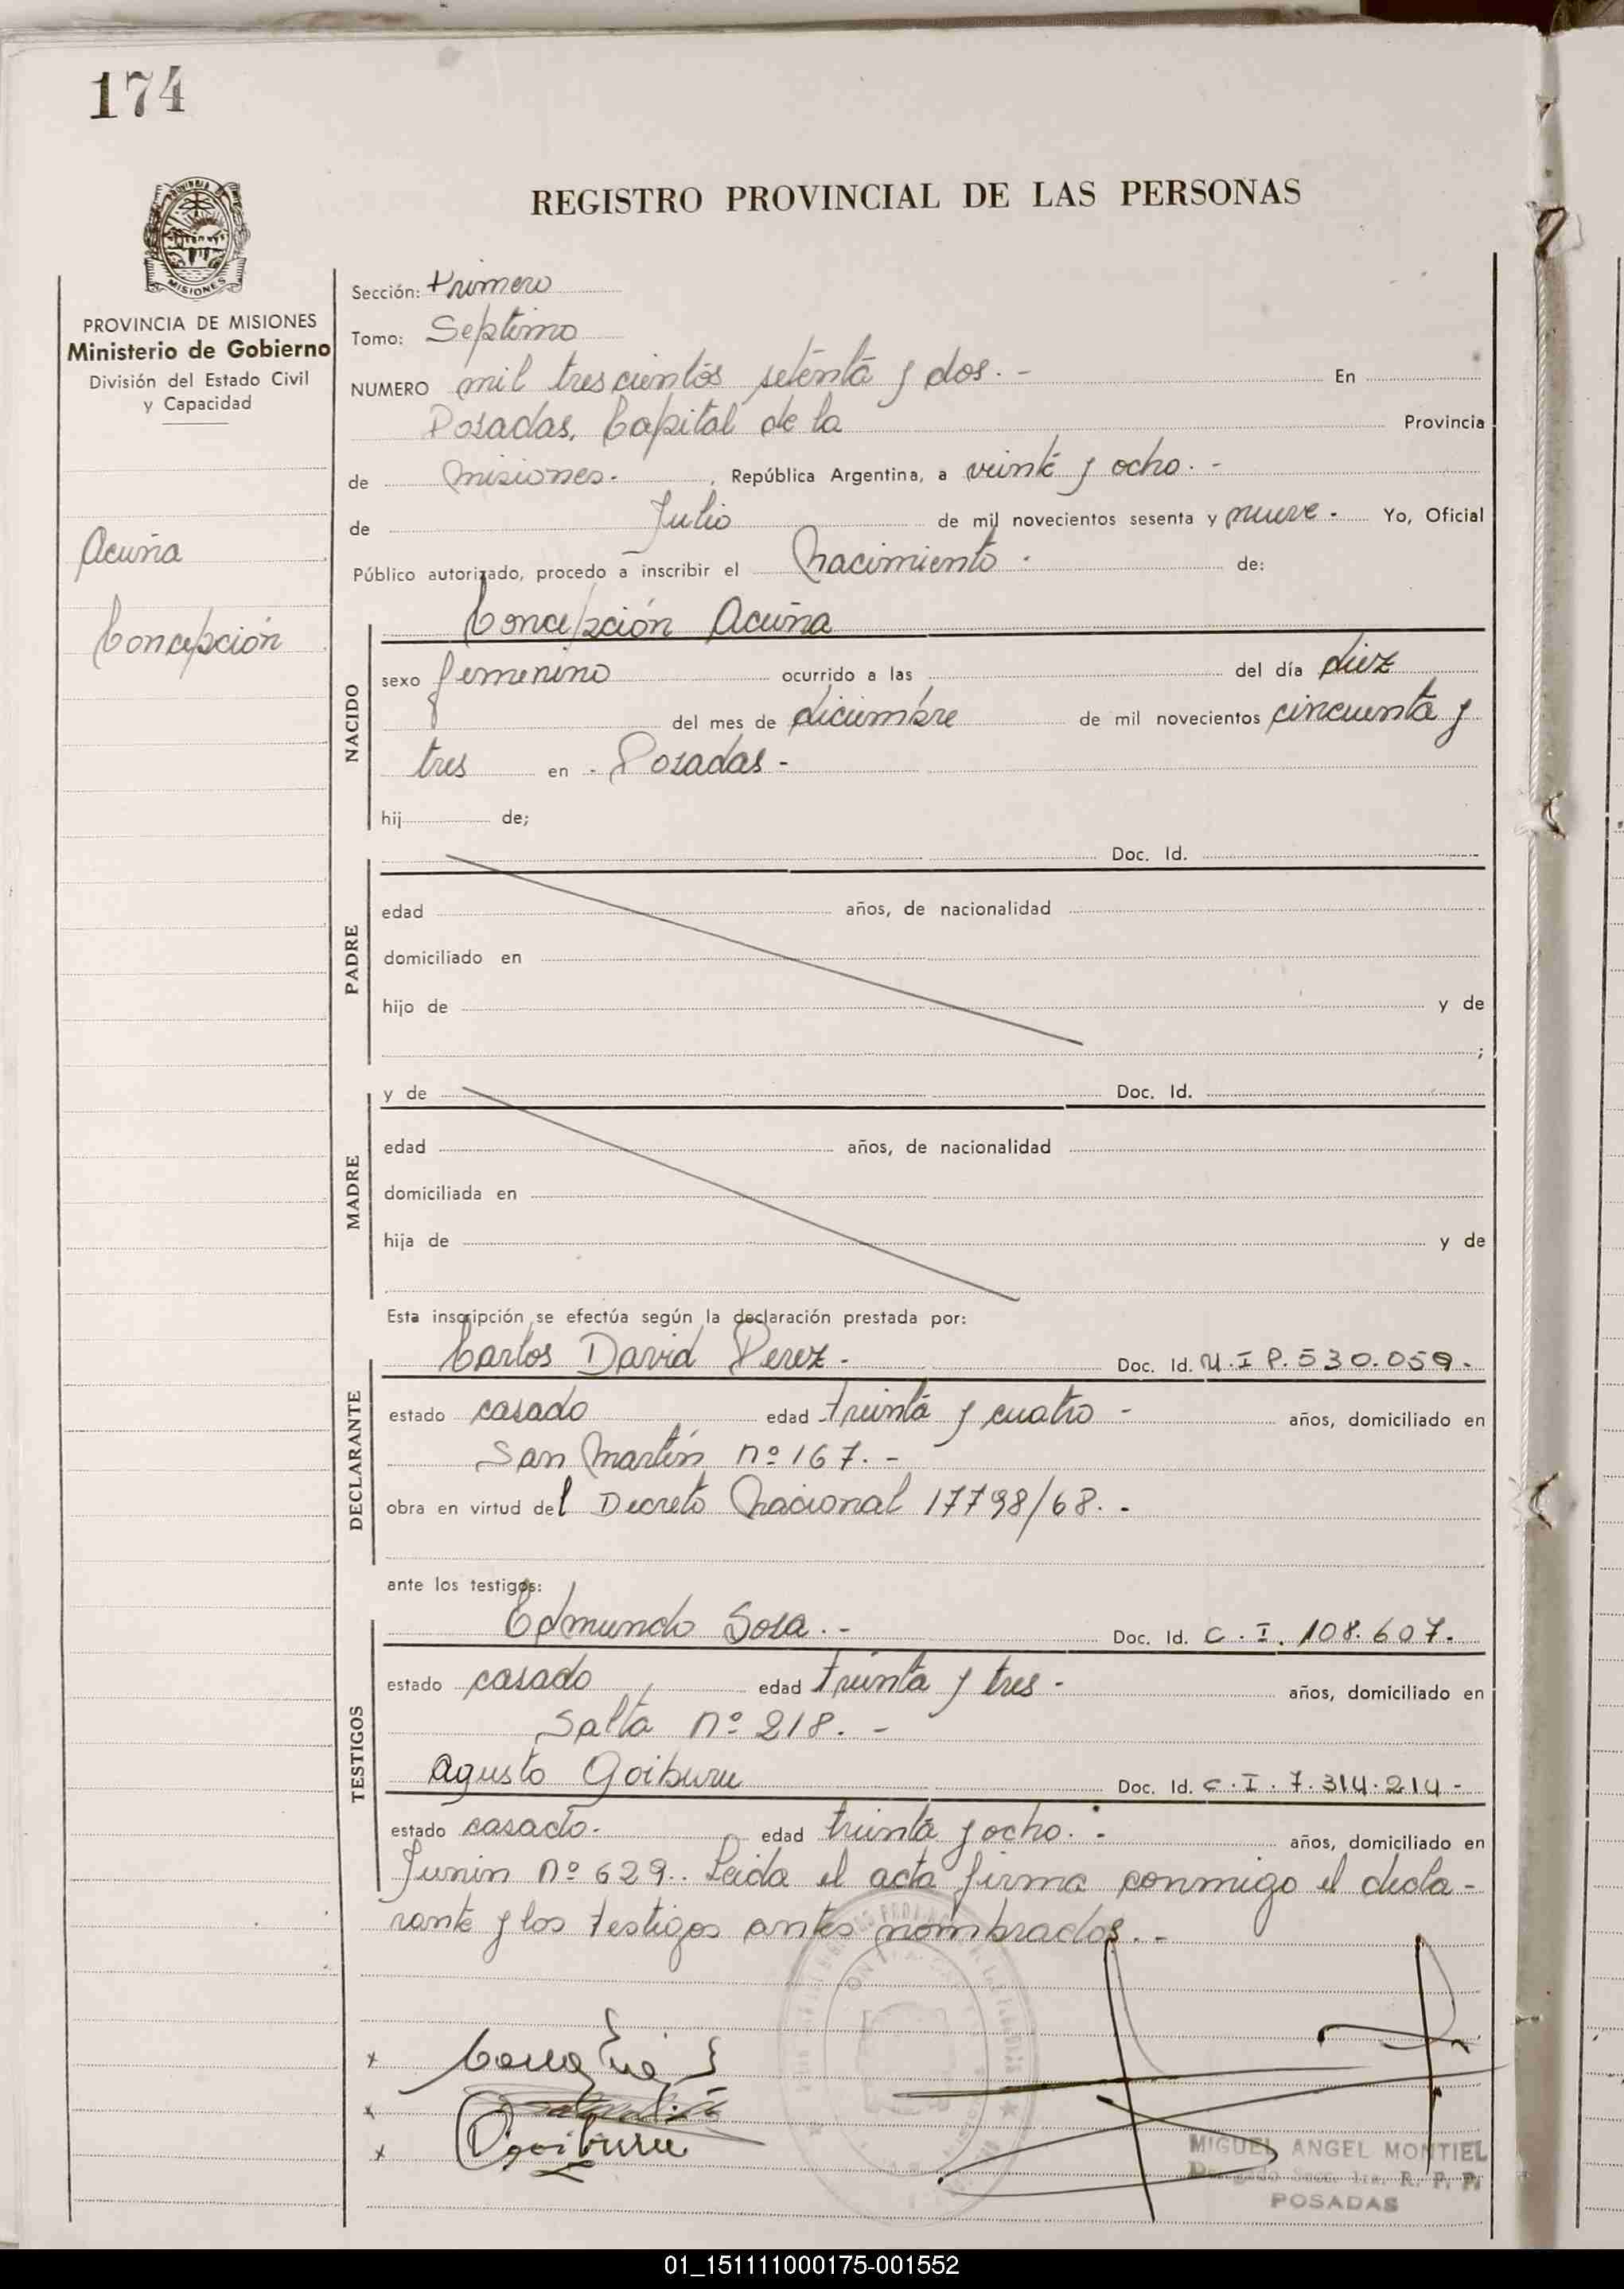 174
REGISTRO PROVINCIAL DE LAS PERSONAS
PROVINCIA
MISIONES
PROVINCIA DE MISIONES
Ministerio de Gobierno
División del Estado Civil
y Capacidad
Acuña
Concepción
Sección: Primero
Tomo: Septimo
NUMERO mil trescientos setenta y dos. - En
Posadas, Capital de la Provincia
de Misiones. , República Argentina, a veinte y ocho. -
de Julio de mil novecientos sesenta y nueve - Yo, Oficial
Público autorizado, procedo a inscribir el Nacimiento - de:
Concepción Acuña
NACIDO
sexo femenino ocurrido a las del día diez
del mes de diciembre de mil novecientos cincuenta y
tres en - Posadas -
hij de;
PADRE
Doc. Id.
edad años, de nacionalidad
domiciliado en
hijo de y de
;
MADRE
y de Doc. Id.
edad años, de nacionalidad
domiciliada en
hija de y de
Esta inscripción se efectúa según la declaración prestada por:
DECLARANTE
Carlos David Perez - Doc. Id. M.I 8.530.059.
estado casado edad treinta y cuatro - años, domiciliado en
San Martín nº 167. -
obra en virtud del Decreto Nacional 17798/68. -
ante los testigos:
TESTIGOS
Edmundo Sosa. - Doc. Id. C.I. 108.607.
estado casado edad treinta y tres - años, domiciliado en
Salta nº 218. -
Agusto Goiburu Doc. Id. C.I. 7.314.214 -
estado casado. edad treinta y ocho. - años, domiciliado en
Junin nº 629.. Leida el acta firma conmigo el decla-
rante y los testigos antes nombrados. -
x
x
x Goiburu
MIGUEL ANGEL MONTIEL
Delegado Secc. 1ra. R. P. P.
POSADAS
01_151111000175-001552